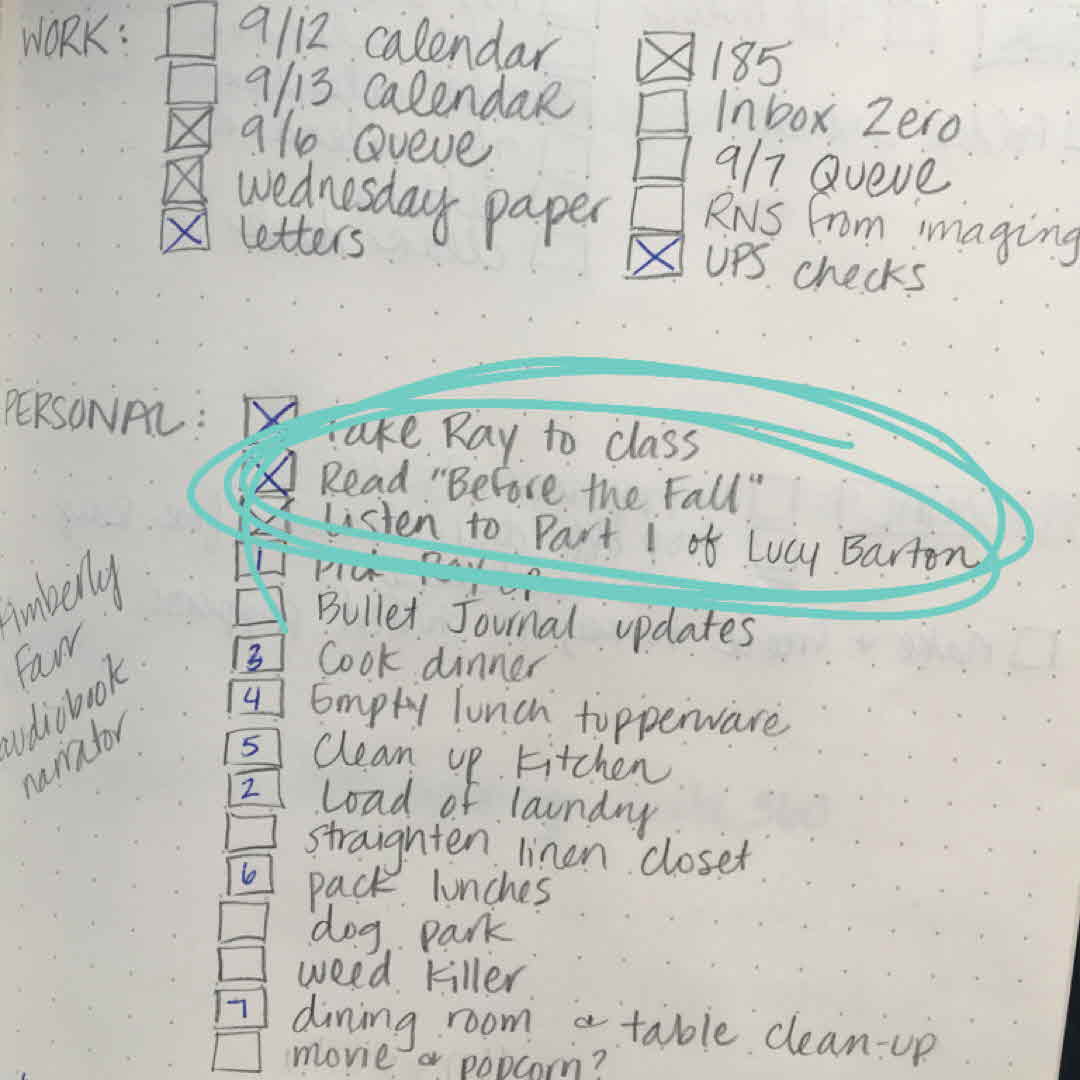 WORK:
9/12 calendar
9/13 calendar
9/6 Queue
wednesday paper
letters
185
Inbox Zero
9/7 Queue
RNS from imaging
UPS checks
PERSONAL:
Take Ray to class
Read "Before the Fall"
Listen to Part 1 of Lucy Barton
1 pick Ray up
Bullet Journal updates
3 Cook dinner
4 Empty lunch tupperware
5 Clean up kitchen
2 Load of laundry
straighten linen closet
6 pack lunches
dog park
weed killer
7 dining room & table clean-up
movie & popcorn?
Kimberly
Farr
audiobook
narrator